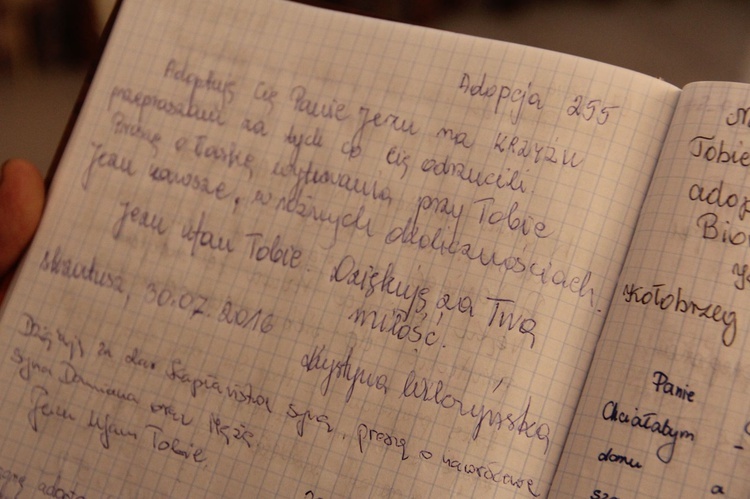 Adopcja 255
Adoptuję Cię Panie Jezu na KRZYŻU
przepraszam za tych co Cię odrzucili.
Proszę o łaskę wytrwania przy Tobie
Jezu zawsze, w różnych okolicznościach.
Jezu Ufam Tobie. Dziękuję za Twą
miłość.
Skrzatusz, 30.07.2016
Krystyna
Dziękuję za dar kapłaństwa syna, proszę o nawrócenie
syna Damiana oraz męża.
Jezu Ufam Tobie
Tobie
Kołobrzeg
Panie
Chciałabym
domu
a